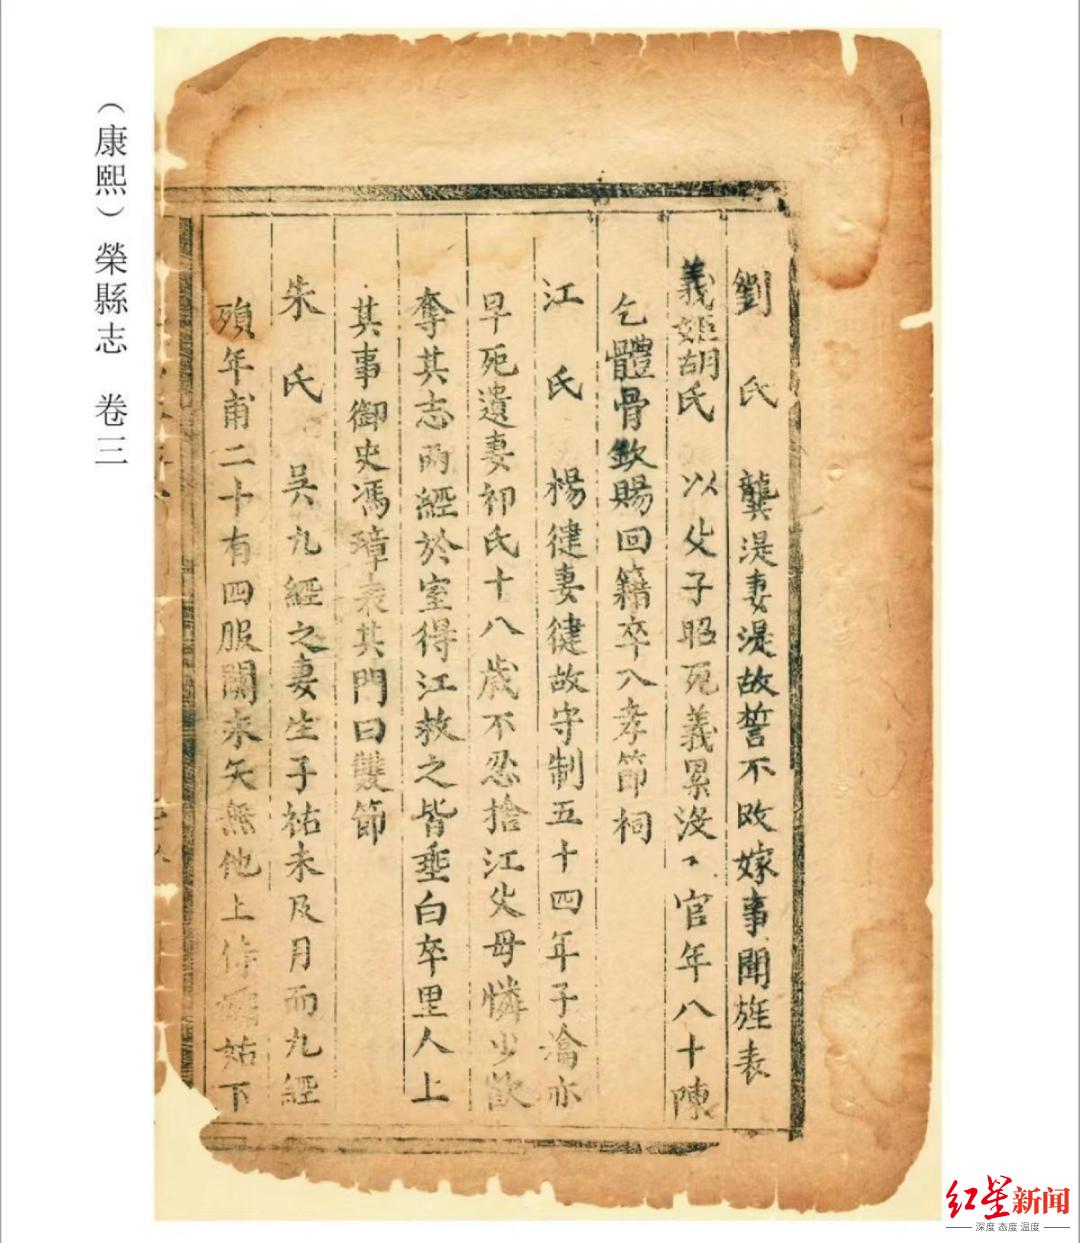 （康熙）榮縣志 卷三
劉氏 龔湜妻湜故誓不改嫁事聞旌表
義姬胡氏 以父子昭死義累沒入官年八十陳
乞體骨欽賜回籍卒入孝節祠
江氏 楊徤妻徤故守制五十四年子瀹亦
早死遺妻祁氏十八歲不忍捨江父母憐少欲
奪其志兩經於室得江救之皆垂白卒里人上
其事御史馮璋表其門曰雙節
朱氏 吳九經之妻生子祐未及月而九經
殞年甫二十有四服闋來矢無他上侍孀姑下
红星新闻
深度 态度 温度